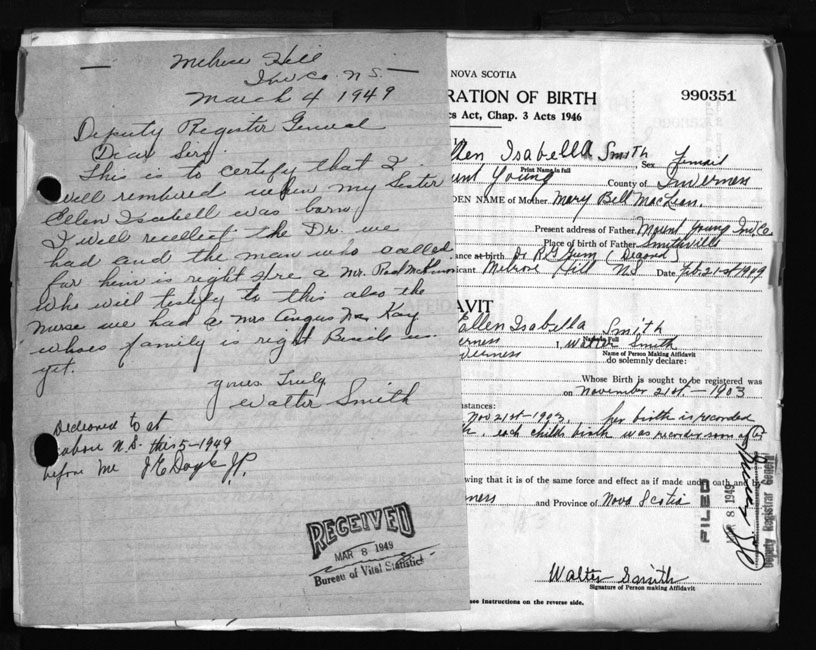 Melrose Hill
Inv Co. N.S.
March 4 1949
Deputy Register General
Dear Serg.
This is to certify that I
well rembured when my Sister
Ellen Isabell was born
I well recollect the Dr. we
had and the man who called
for him is right here a Mr.
who will testify to this also the
nurse we had a Mrs Angus Mc Kay
whoes family is right Beside us
yet.
yours Truly
Walter Smith
at
above N.S. this 5-1949
before me J E Doyle J.P.
RECEIVED
MAR 8 1949
Bureau of Vital Statistics
NOVA SCOTIA
RATION OF BIRTH
990351
cs Act, Chap. 3 Acts 1946
llen Isabella Smith, Sex Femail
Print Name in full
unt Young County of Inverness
DEN NAME of Mother. Mary Bell MacLean.
Present address of Father. Mount Young Inv. Co
Place of birth of Father. Smithville
ance at birth. Dr
icant Melrose Hill NS Date Feb. 21st 1949
AVIT
Ellen Isabella Smith
Name in Full
erness I, Walter Smith
Name of Person Making Affidavit
verness do solemnly declare:
Whose Birth is sought to be registered was
on November 21st-1903
stances:
Nov 21st-1903. her birth is recorded
each childs birth was recorded soon after
wing that it is of the same force and effect as if made under oath and by
rness and Province of Nova Scotia
FILED
MAR 8 1949
Deputy Registrar General
Walter Smith
Signature of Person making Affidavit
see Instructions on the reverse side.